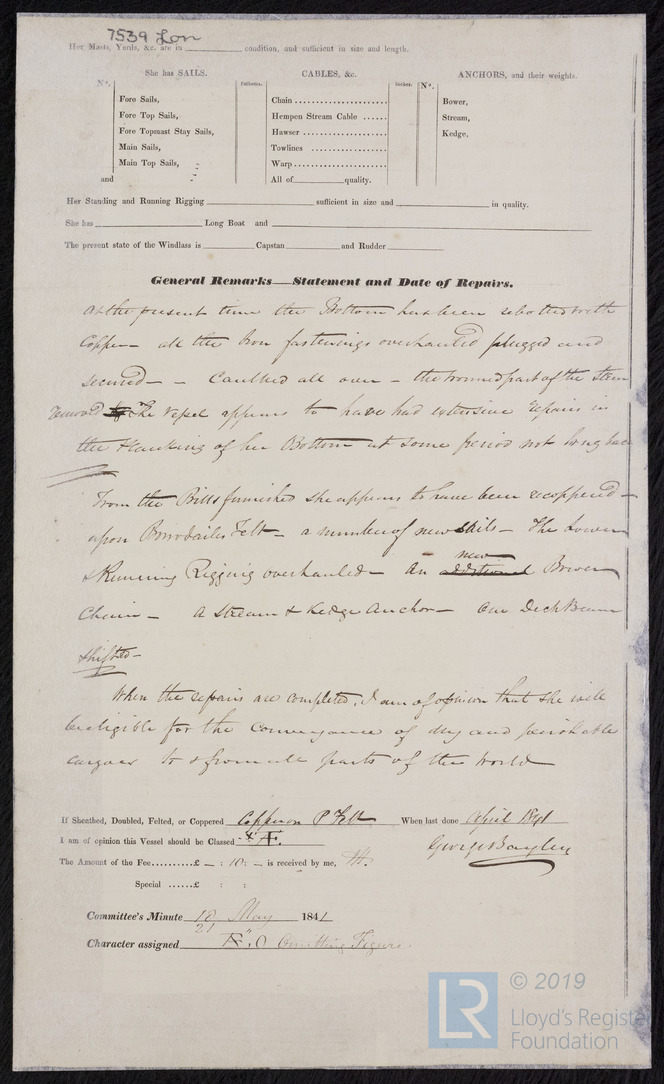 7539 Lon
Her Masts, Yards, &c. are in condition, and sufficient in size and length.
She has SAILS. CABLES, &c. ANCHORS, and their weights.
N°. Fathoms. Inches. N°.
Fore Sails, Chain Bower,
Fore Top Sails, Hempen Stream Cable Stream,
Fore Topmast Stay Sails, Hawser Kedge,
Main Sails, Towlines
Main Top Sails, Warp
and All of quality.
Her Standing and Running Rigging sufficient in size and in quality.
She has Long Boat and
The present state of the Windlass is Capstan and Rudder
General Remarks—Statement and Date of Repairs.
At the present time the Bottom has been rebolted with
Copper – all the Iron fastenings overhauled plugged and
secured – – Caulked all over – the part of the Stem
renewed The Vessel appears to have had extensive repairs in
the Planking of her Bottom at some period not long back
From the Bills furnished she appears to have been recoppered –
upon Borrodailes Felt – a number of new Sails – The Lower
& Running Rigging overhauled – An new additional Bower
Chain – A Stream & Kedge Anchor – One Deck Beam
shifted –
When the repairs are completed, I am of opinion that she will
be eligible for the conveyance of dry and perishable
cargoes to & from all parts of the World
If Sheathed, Doubled, Felted, or Coppered Copper on P Felt When last done April 1841
I am of opinion this Vessel should be Classed George Bayley
The Amount of the Fee £ – : 10 : – is received by me,
Special £ : :
Committee's Minute 18 May 1841
21
Character assigned Omitting Figure
© 2019
LR Lloyd's Register
Foundation